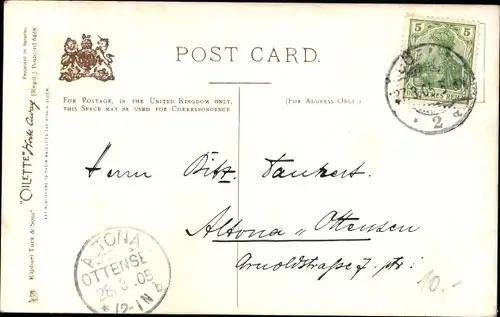 POST CARD.
FOR POSTAGE, IN THE UNITED KINGDOM ONLY,
THIS SPACE MAY BE USED FOR CORRESPONDENCE
(FOR ADDRESS ONLY.)
Raphael Tuck & Sons' "OILETTE" [Regd.] Postcard 6468
5 5
REICH
2
Herrn Tankert.
Altona „ Ottensen
Arnoldstrasse 7. ptr:
10.-
ALTONA
OTTENSE
28.3.05
*12-1N